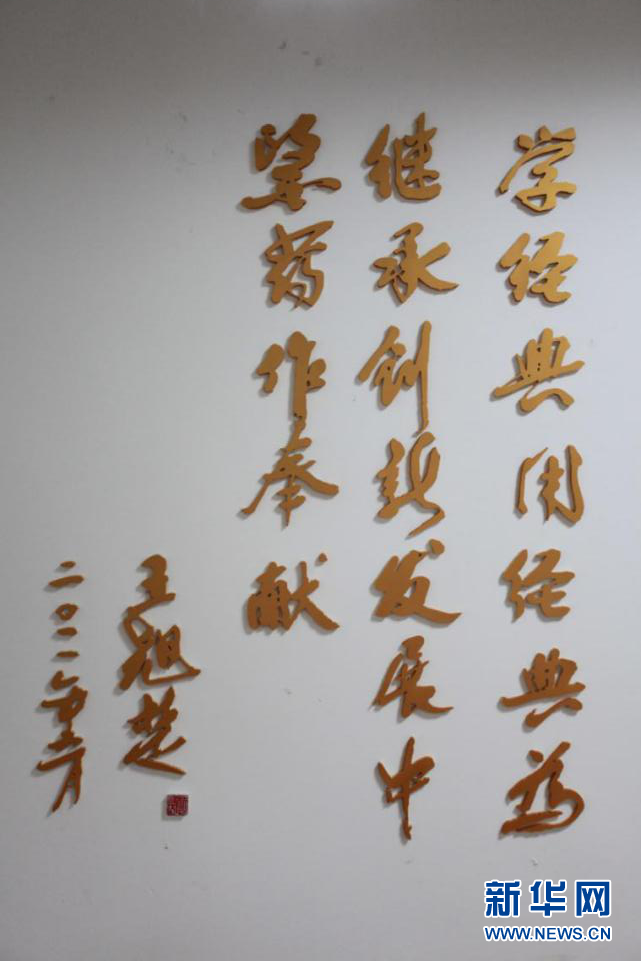 学经典用经典为
继承创新发展中
醫药作奉献
王旭楚
二〇一一年
新华网
WWW.NEWS.CN